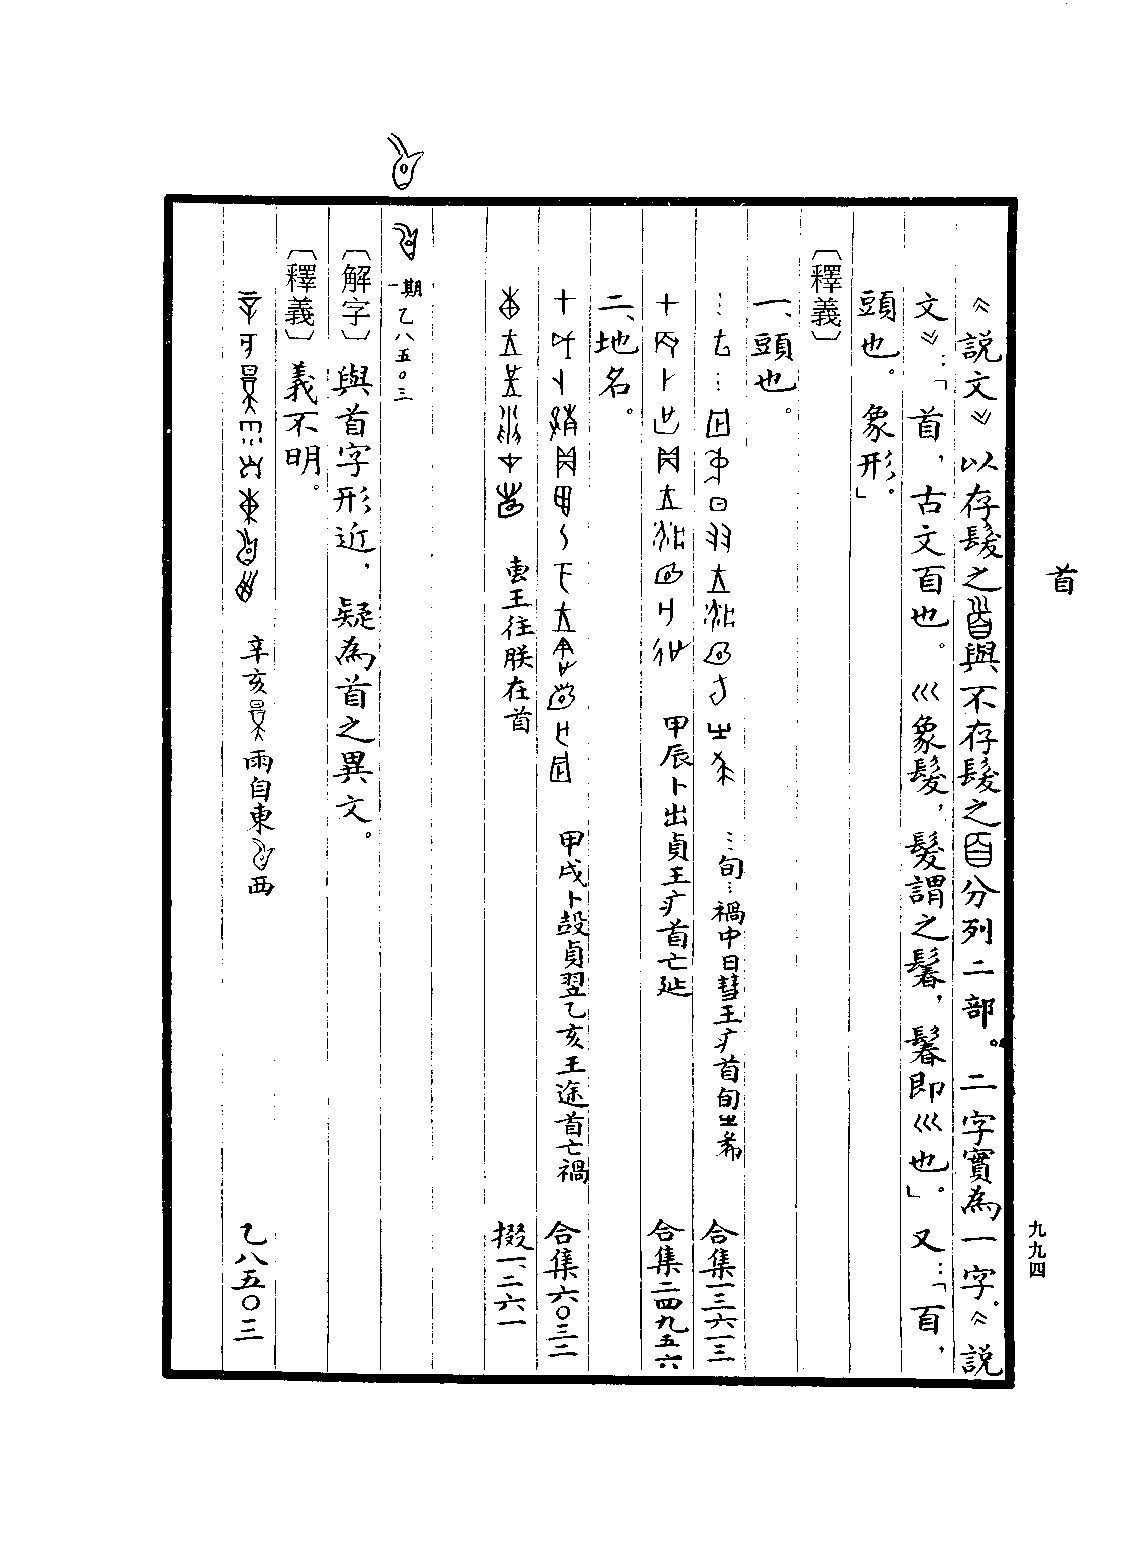 首
九九四
《説文》以存髮之與不存髮之分列二部。二字實為一字。《説
文》：「首，古文𦣻也。巛象髮，髮謂之鬊，鬊即巛也」。又：「𦣻，
頭也。象形。」
〔釋義〕
一、頭也。
…旬…禍中日彗王疒首旬㞢希 合集一三六一三
甲辰卜出貞王疒首亡延 合集二四九五六
二、地名。
甲戌卜㱿貞翌乙亥王途首亡禍 合集六〇三二
叀王往朕在首 掇一、二六一
一期乙八五〇三
〔解字〕與首字形近，疑為首之異文。
〔釋義〕義不明。
辛亥雨自東西 乙八五〇三